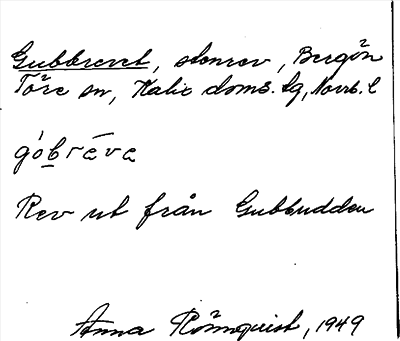 Gubbrevet, stenrev, Bergön
Töre sn, Kalix doms. tg, Norrb. l
góbrḗve
Rev ut från Gubbudden
Anna Rönnquist, 1949